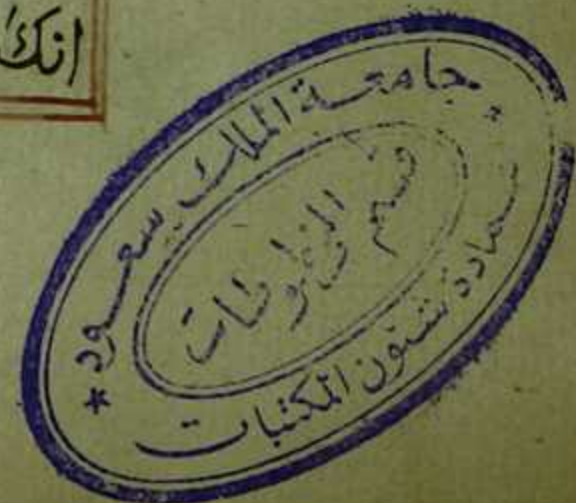 انك
جامعة الملك سعود
قسم المخطوطات
عمادة شئون المكتبات